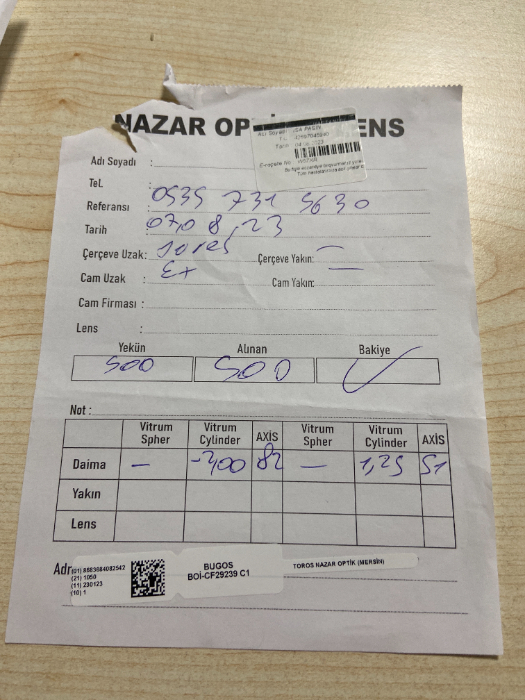 NAZAR OP ENS
Adı Soyadı :
Tel. : 0535 731 5630
Referansı :
Tarih : 07,08,23
Çerçeve Uzak: Çerçeve Yakın:
Cam Uzak : Cam Yakın:
Cam Firması :
Lens :
Yekün Alınan Bakiye
500 500
Not :
Vitrum Spher Vitrum Cylinder AXİS Vitrum Spher Vitrum Cylinder AXİS
Daima — 82 — 1,25 51
Yakın
Lens
Adr
(21) 1050
(11) 230123
(10) 1
BUGOS
BOİ-CF29239 C1
TOROS NAZAR OPTİK (MERSİN)